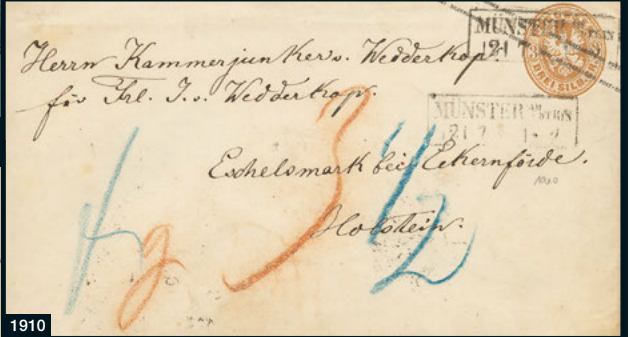 MÜNSTER AM STEIN
DREI SILB.
Herrn Kammerjunker v. Wedderkop.
für Frl. I. v. Wedderkop.
MÜNSTER AM STEIN
12 1 7
Eschelsmark bei Eckernförde.
1910
Holstein.
3 1/2
1910